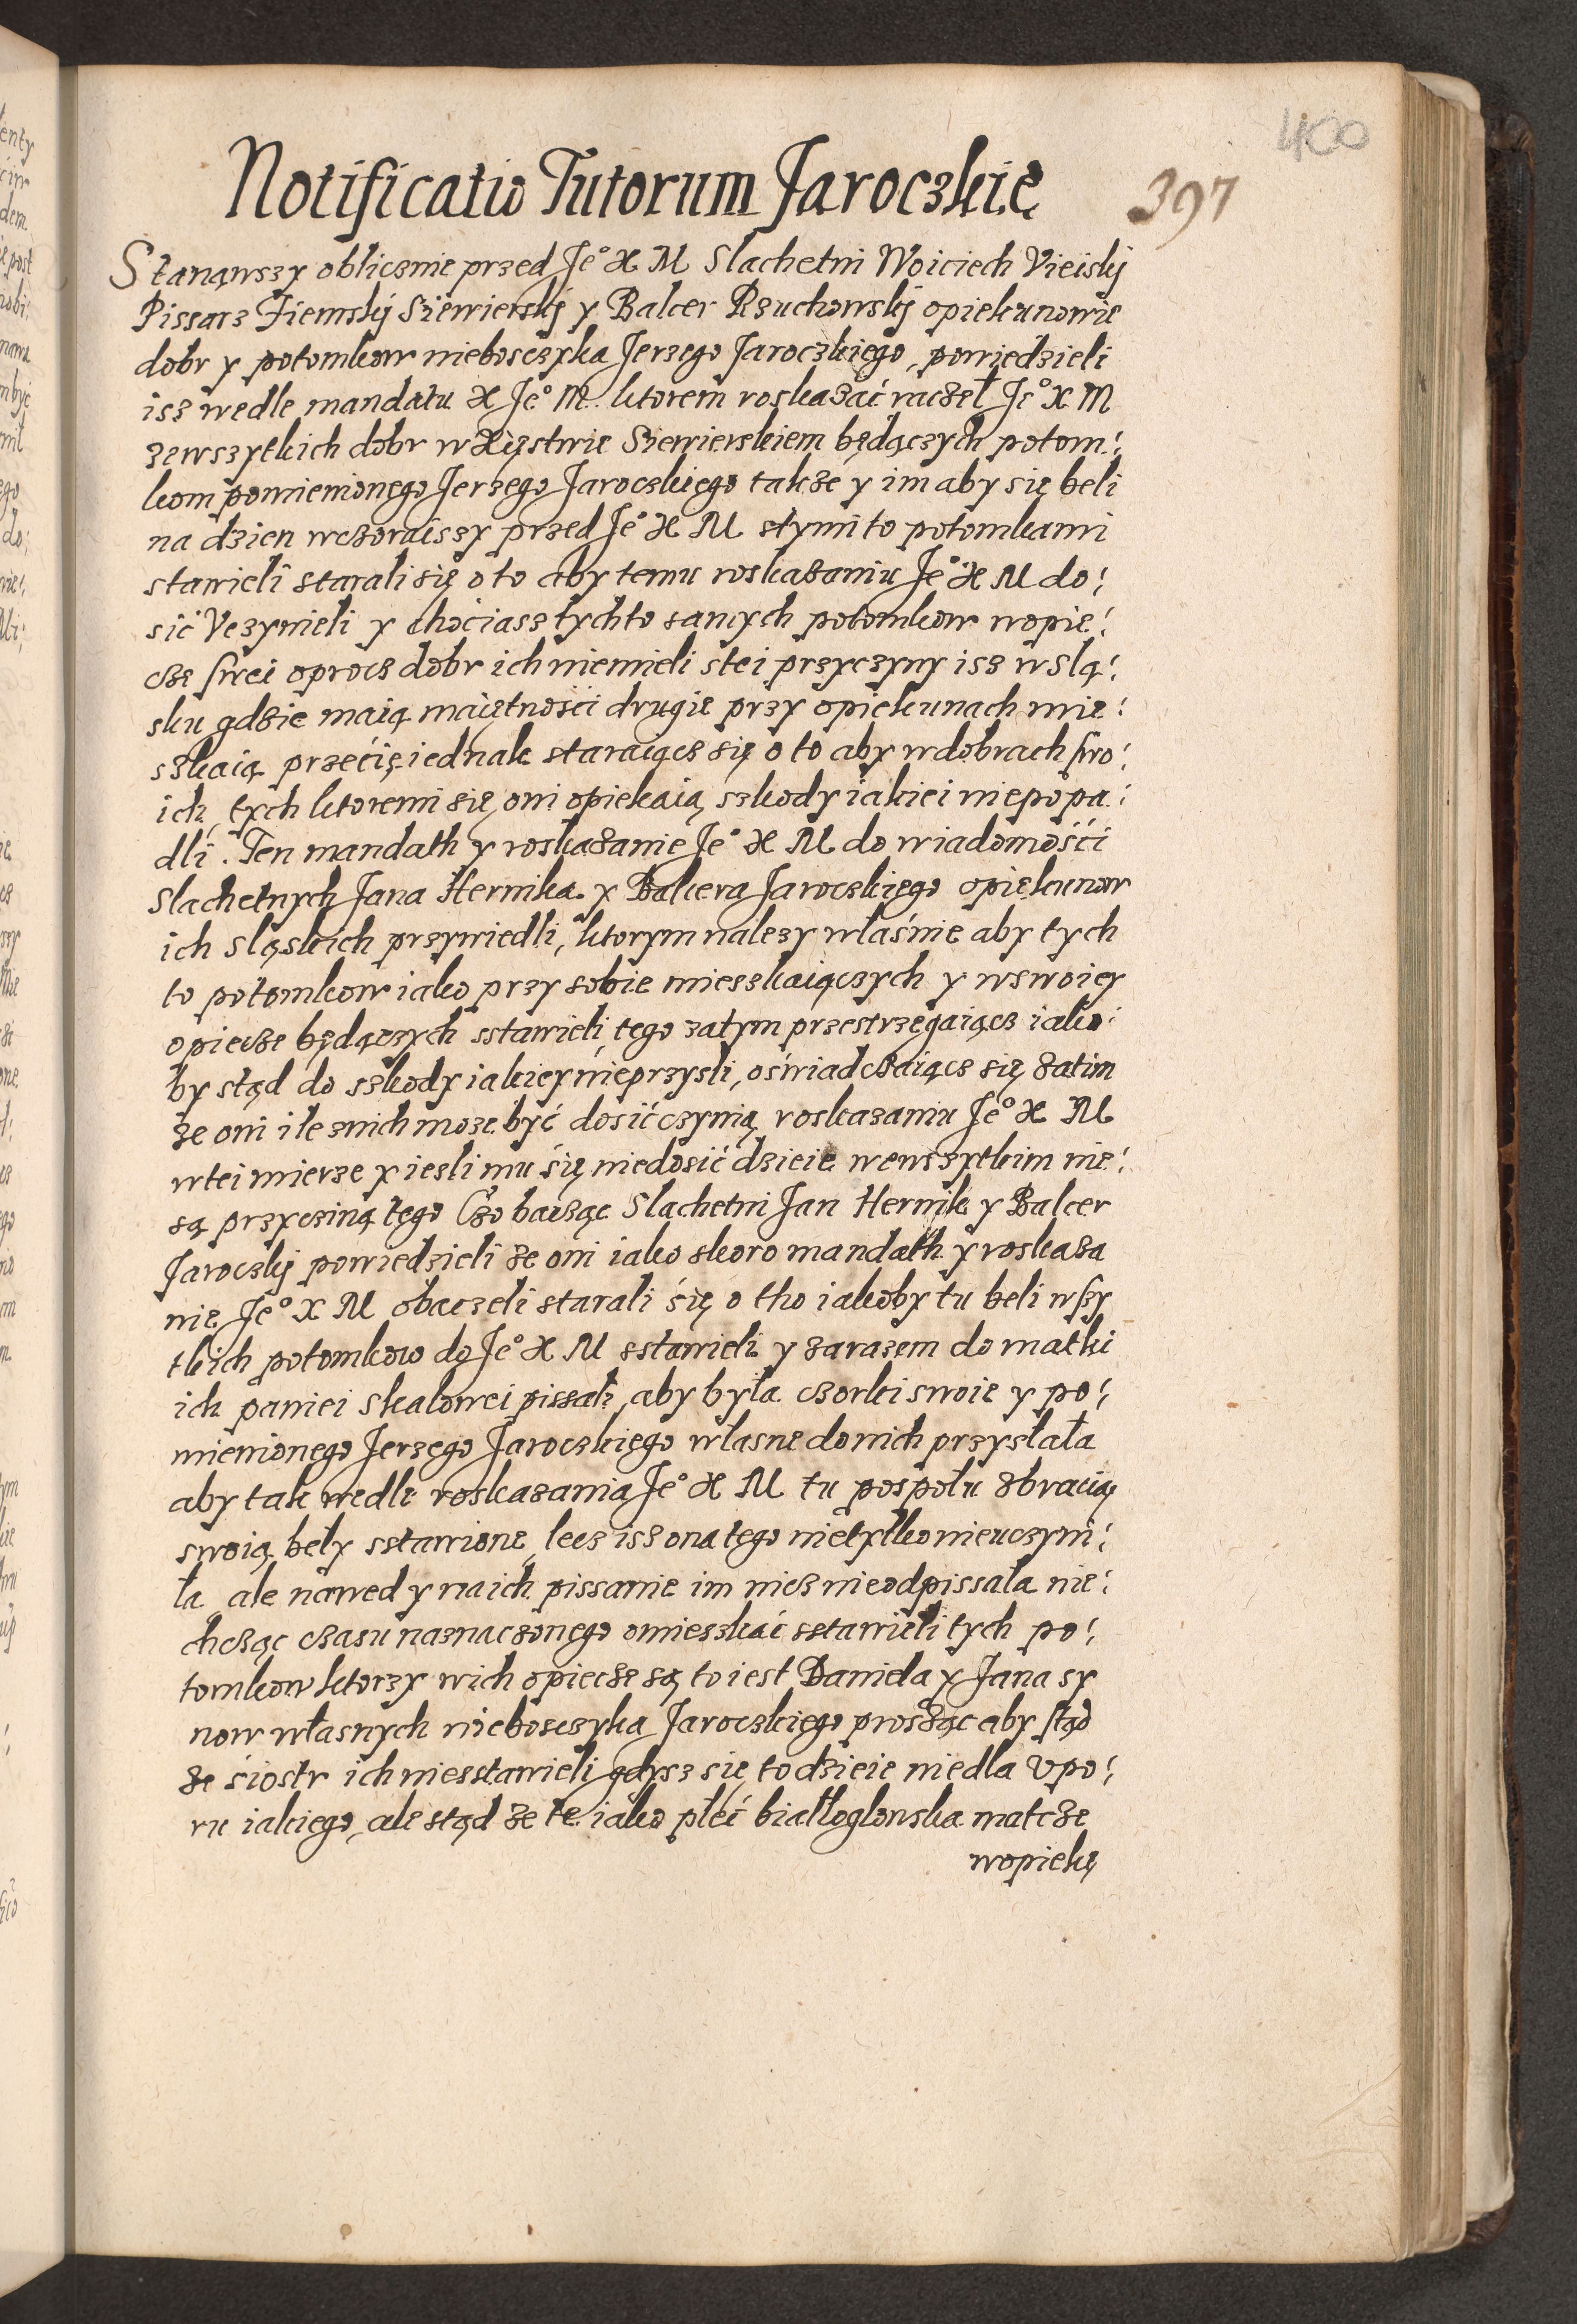 400
Notificatio Tutorum Jaroczkie
397
Stanąwszy oblicznie przed Je° X M Slachetni Woiciech Vieiskÿ
Pissarz Ziemskÿ Siewierskÿ y Balcer Rzuchowskÿ opiekunowie
dobr y potomkow niebosczyka Jerzego Jaroczkiego, powiedzieli
isz wedle mandatu X Je° M ktorem roskazać raczeł Je° X M
zewszytkich dobr w Xięstwie Siewierskiem będączych potom:
kom pomienionego Jerzego Jaroczkiego takze y im aby się beli
na dzien wczoraiszy przed Je° X M stymi to potomkami
stawieli starali się o to aby temu roskazaniu Je° X M do:
sić Vczynieli y chociasz tychto samych potomkow wopie:
cze swei oprocz dobr ich niemieli stei przyczyny isz w Slą:
sku gdzie maią maiętności drugie przy opiekunach mie:
szkaią przecię iednak staraiącz się o to aby wdobrach swo:
ich tych ktoremi się oni opiekaią szkody iakiei niepopa:
dli. Ten mandath y roskazanie Je° X M do wiadomości
Slachetnych Jana Hernika y Balcera Jaroczkiego opiekunow
ich Sląskich przywiedli, ktorym nalezy własnie aby tych
to potomkow iako przy sobie mieszkaiączych y wswoiey
opiecze będączych sstawieli tego zatym przestrzegaiącz iako:
by stąd do szkody iakiey nieprzysli, oświadczaiącz się zatim
ze oni ile znich moze być dosić czynią roskazaniu Je° X M
wtei mierze y iesli mu się niedosić dzieie wewszytkim nie:
są przyczyną tego Czo bacząc Slachetni Jan Hernik y Balcer
Jaroczkÿ powiedzieli ze oni iako skoro mandath y roskaza
nie Je° X M obaczeli starali się o tho iakoby tu beli wszy
tkich potomkow do Je° X M sstawieli y zarazem do matki
ich paniei Skalowei pissali, aby była czorki swoie y po:
mienionego Jerzego Jaroczkiego własne do nich przysłała
aby tak wedle roskazania Je° X M tu pospołu zbracią
swoią beły sstawione, lecz isz ona tego nietylko nieuczyni:
ła ale nawed y na ich pissanie im nicz nieodpissała nie:
chcząc czasu naznaczonego omieszkać sstawieli tych po:
tomkow ktorzy wich opiecze są to iest Daniela y Jana sy
now własnych niebosczyka Jaroczkiego prosząc aby stąd
ze siostr ich niesstawieli gdysz się to dzieie niedla Vpo:
ru iakiego, ale stąd ze te iako płeć białłoglowska matcze
wopiekę